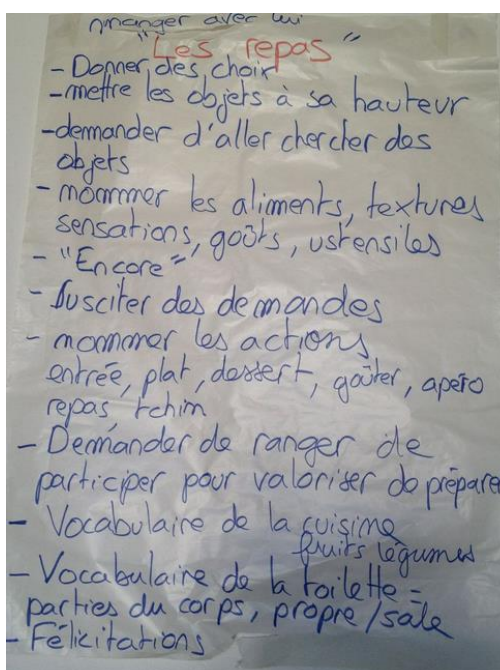 manger avec lui
"Les repas"
- Donner des choix
- mettre les objets à sa hauteur
- demander d'aller chercher des
objets
- nommer les aliments, textures
sensations, goûts, ustensiles
- "Encore"
- Susciter des demandes
- nommer les actions
entrée, plat, dessert, goûter, apéro
repas, tchim
- Demander de ranger de
participer pour valoriser de prépare
- Vocabulaire de la cuisine
fruits légumes
- Vocabulaire de la toilette -
parties du corps, propre/sale
- Félicitations